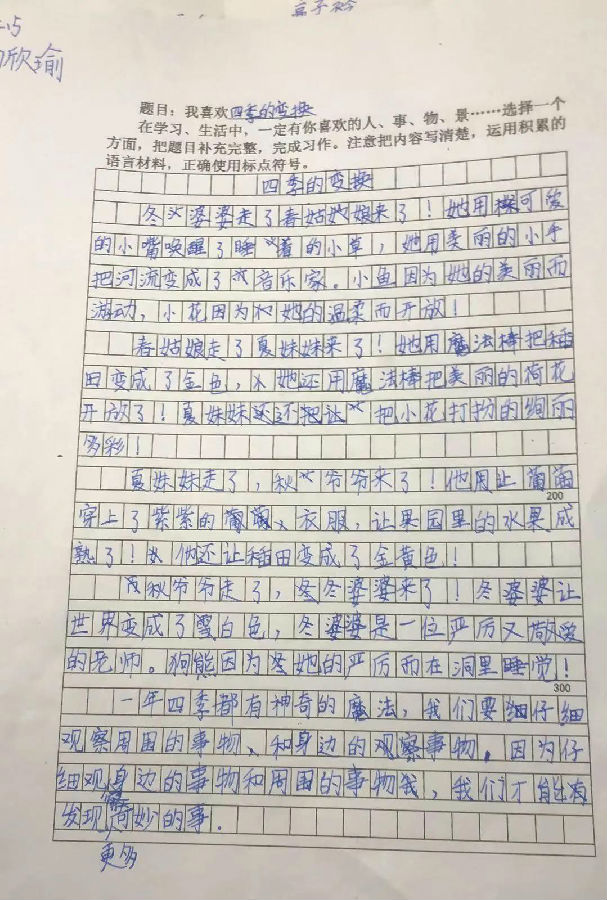 欣瑜
题目：我喜欢四季的变换
在学习、生活中，一定有你喜欢的人、事、物、景……选择一个
方面，把题目补充完整，完成习作。注意把内容写清楚，运用积累的
语言材料，正确使用标点符号。
四季的变换
冬婆婆走了春姑娘来了！她用可爱
的小嘴唤醒了睡着的小草，她用美丽的小手
把河流变成了音乐家。小鱼因为她的美丽而
游动，小花因为她的温柔而开放！
春姑娘走了夏妹妹来了！她用魔法棒把稻
田变成了金色，她还用魔法棒把美丽的荷花
开放了！夏妹妹还把小花打扮的绚丽
多彩！
夏妹妹走了，秋爷爷来了！他让葡萄
200
穿上了紫紫的衣服，让果园里的水果成
熟了！他还让稻田变成了金黄色！
秋爷爷走了，冬婆婆来了！冬婆婆让
世界变成了雪白色，冬婆婆是一位严厉又敬爱
的老师。狗熊因为她的严厉而在洞里睡觉！
300
一年四季都有神奇的魔法，我们要仔细
观察周围的事物、和身边的观察事物．因为仔
细观身边的事物和周围的事物，我们才能
发现更多奇妙的事．